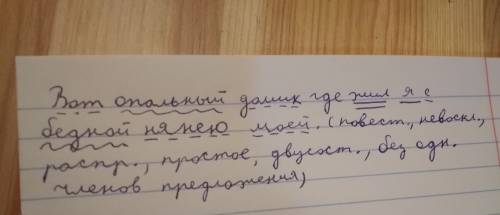 Вот опальный домик где жил я с
бедной нянею моей. (повест., невоскл.,
распр., простое, двусост., без одн.
членов предложения)